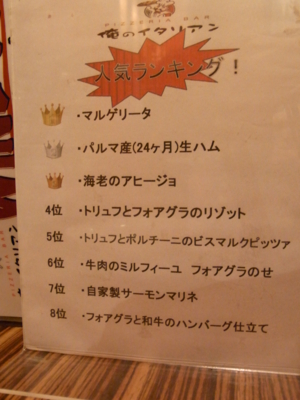 俺のイタリアン
人気ランキング!
・マルゲリータ
・パルマ産(24ヶ月)生ハム
・海老のアヒージョ
4位 ・トリュフとフォアグラのリゾット
5位 ・トリュフとポルチーニのビスマルクピッツァ
6位 ・牛肉のミルフィーユ フォアグラのせ
7位 ・自家製サーモンマリネ
8位 ・フォアグラと和牛のハンバーグ仕立て